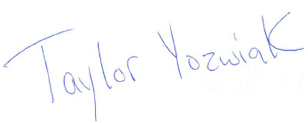 Taylor Yozwiak